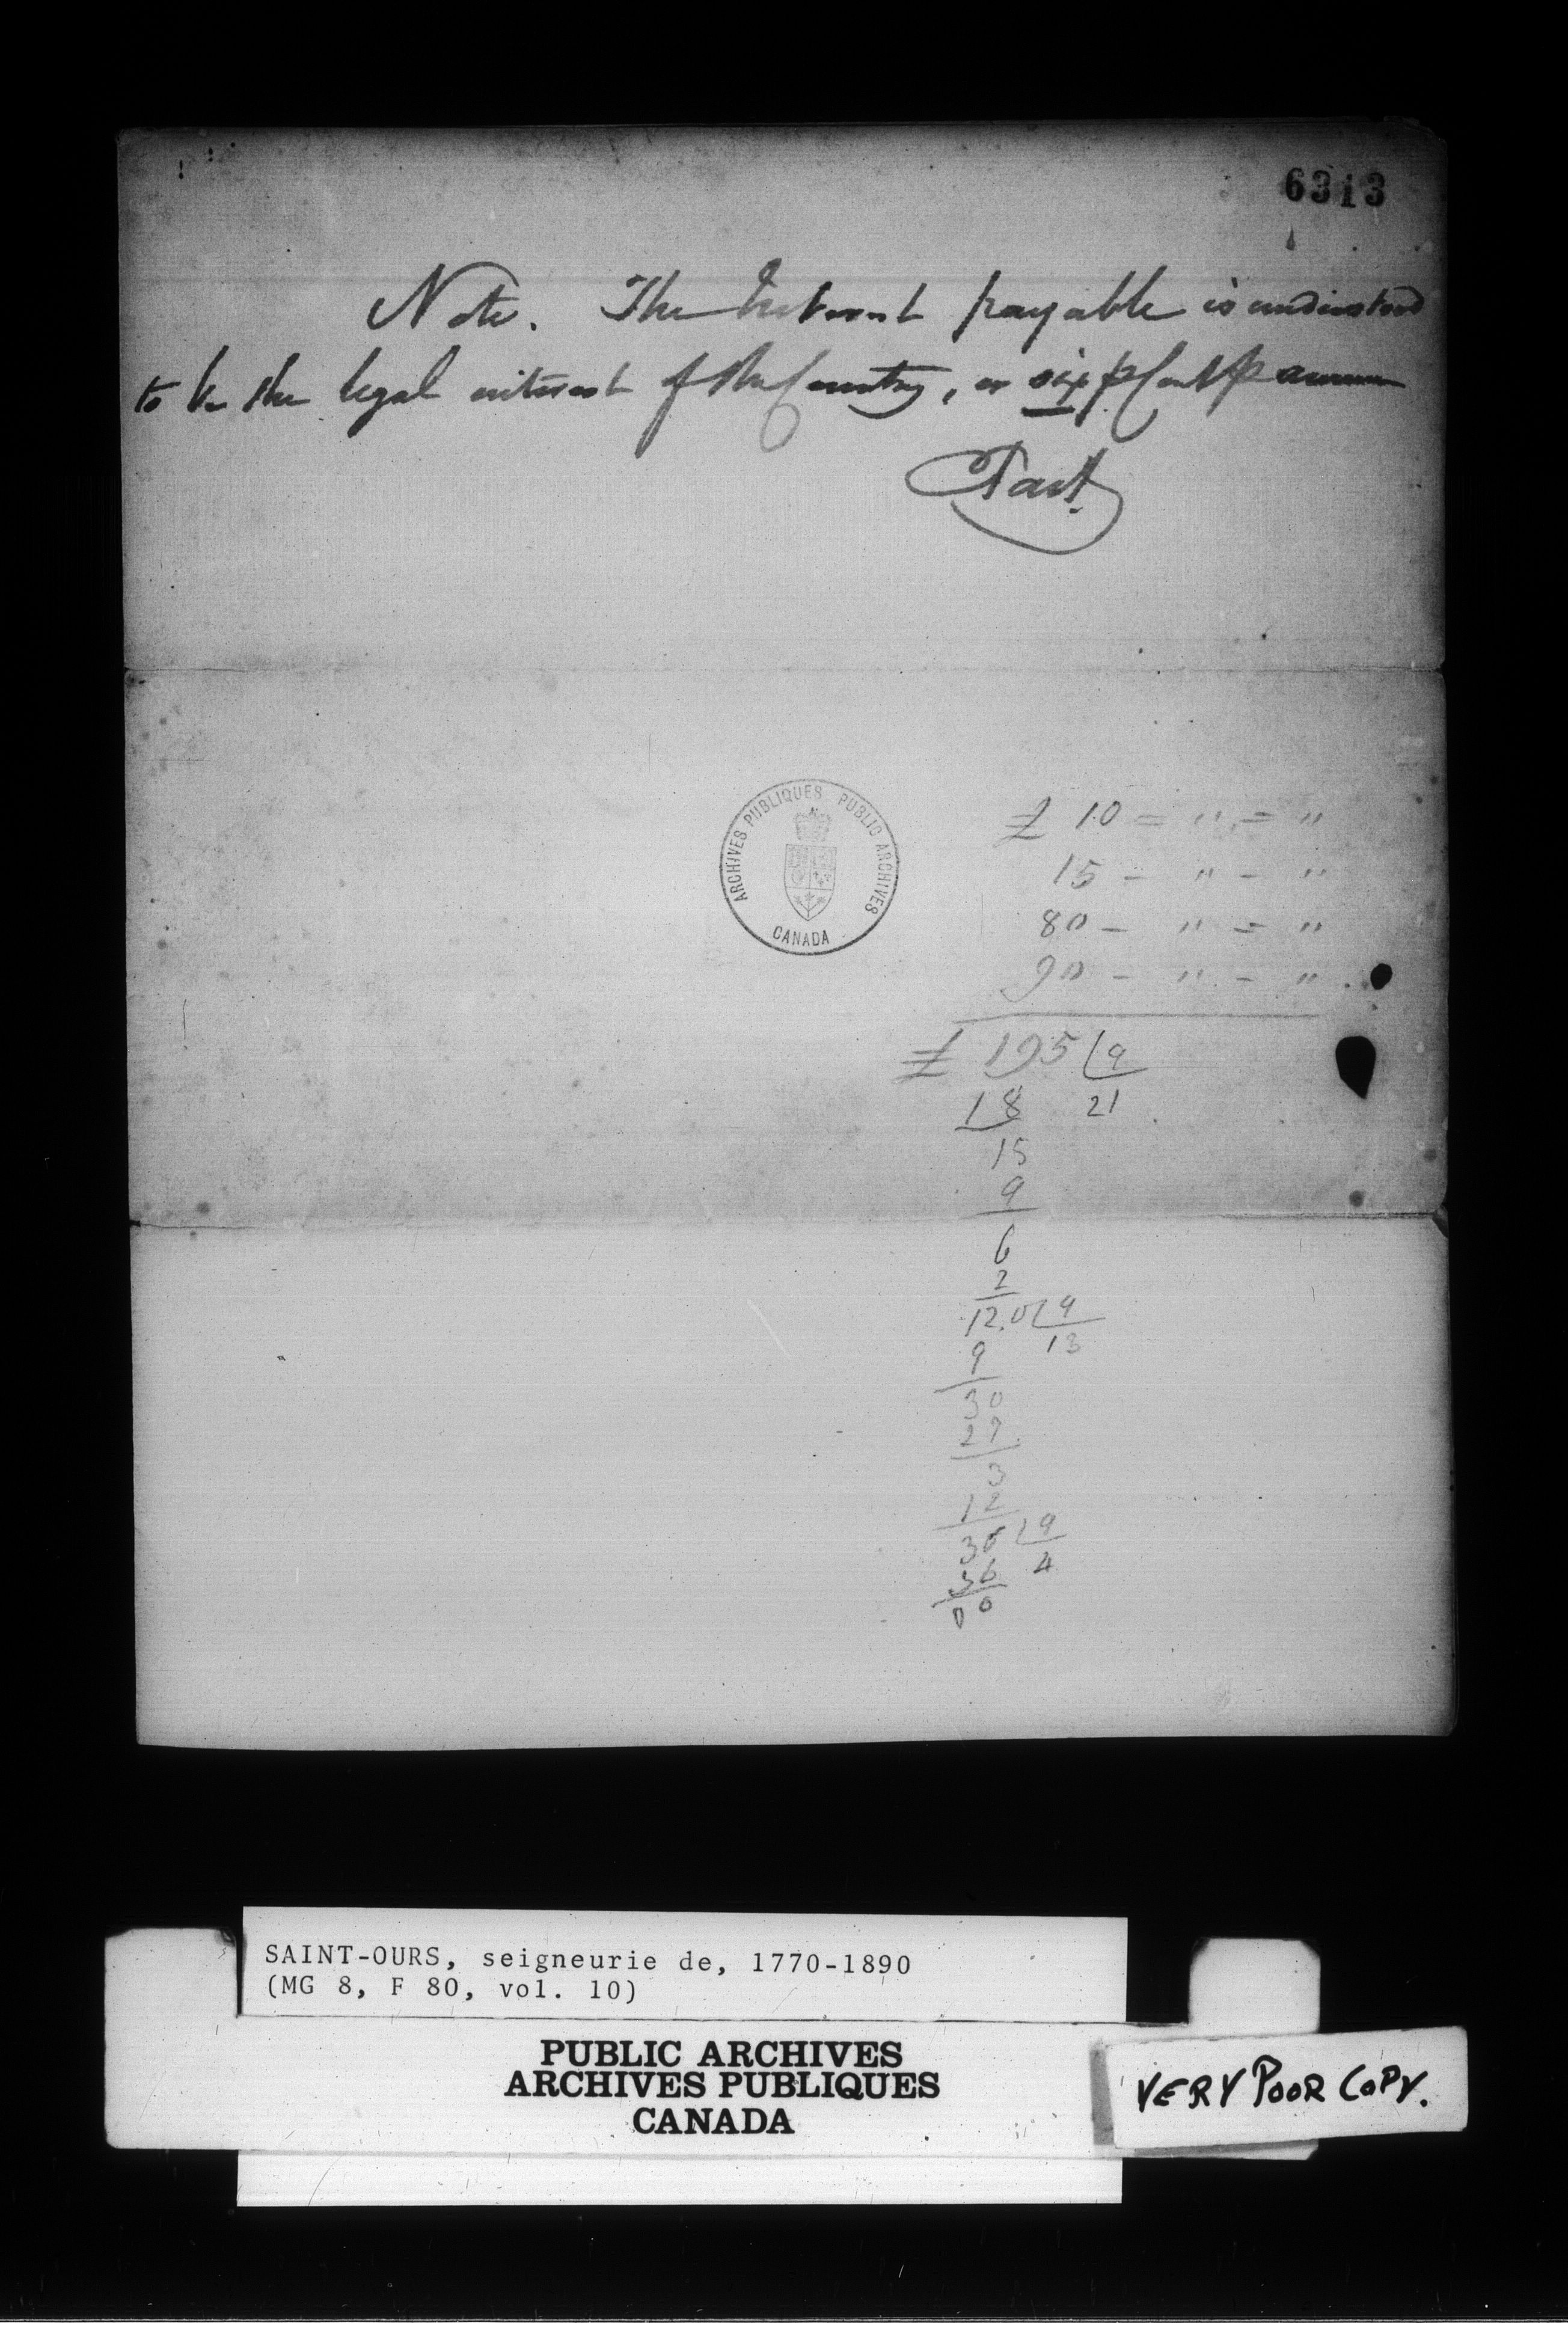 6313
Note. The Interest payable is understood
to be the legal interest of the Country, or six p Cent p annum
Tast.
ARCHIVES PUBLIQUES PUBLIC ARCHIVES
CANADA
£ 10 = " = "
15 - " - "
80 - " = "
90 - " - "
£ 195 ( 9
18 21
15
9
6
2
12.0 ( 9
9 13
30
27
3
12
36 ( 9
36 4
00
SAINT-OURS, seigneurie de, 1770-1890
(MG 8, F 80, vol. 10)
PUBLIC ARCHIVES
ARCHIVES PUBLIQUES
CANADA
VERY POOR COPY.